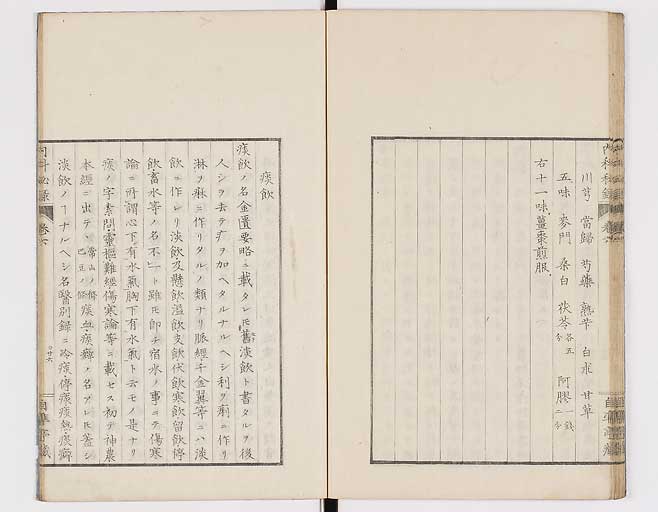 内科秘録 卷六
川芎 當歸 芍藥 熟苄 白朮 甘草
五味 麥門 桑白 茯苓各五分 阿膠一錢二分
右十一味、薑棗煎服、
痰飲
痰飲ノ名金匱要略ニ載タレ𪜈舊淡飲ト書タルヲ後
人シヲ去テ疒ヲ加ヘタルナルヘシ利ヲ痢ニ作リ
淋ヲ痳ニ作リタルノ類ナリ脈經千金翼等ニハ淡
飲ニ作レリ淡飲及懸飲溢飲支飲伏飲寒飲留飲停
飲畜水等ノ名不一ト雖𪜈卽チ宿水ノ事ニテ傷寒
論ニ所謂心下有水氣胸下有水氣ト云モノ是ナリ
痰ノ字素問靈樞難經傷寒論等ニ載セス初テ神農
本經ニ出テ、常山ノ條巴豆ノ條痰 痰癖ノ名アレ𪜈蓋シ
淡飲ノ ナルヘシ名醫別錄ニ冷痰停痰痰熱痰癖
内科秘録 卷六 廿六